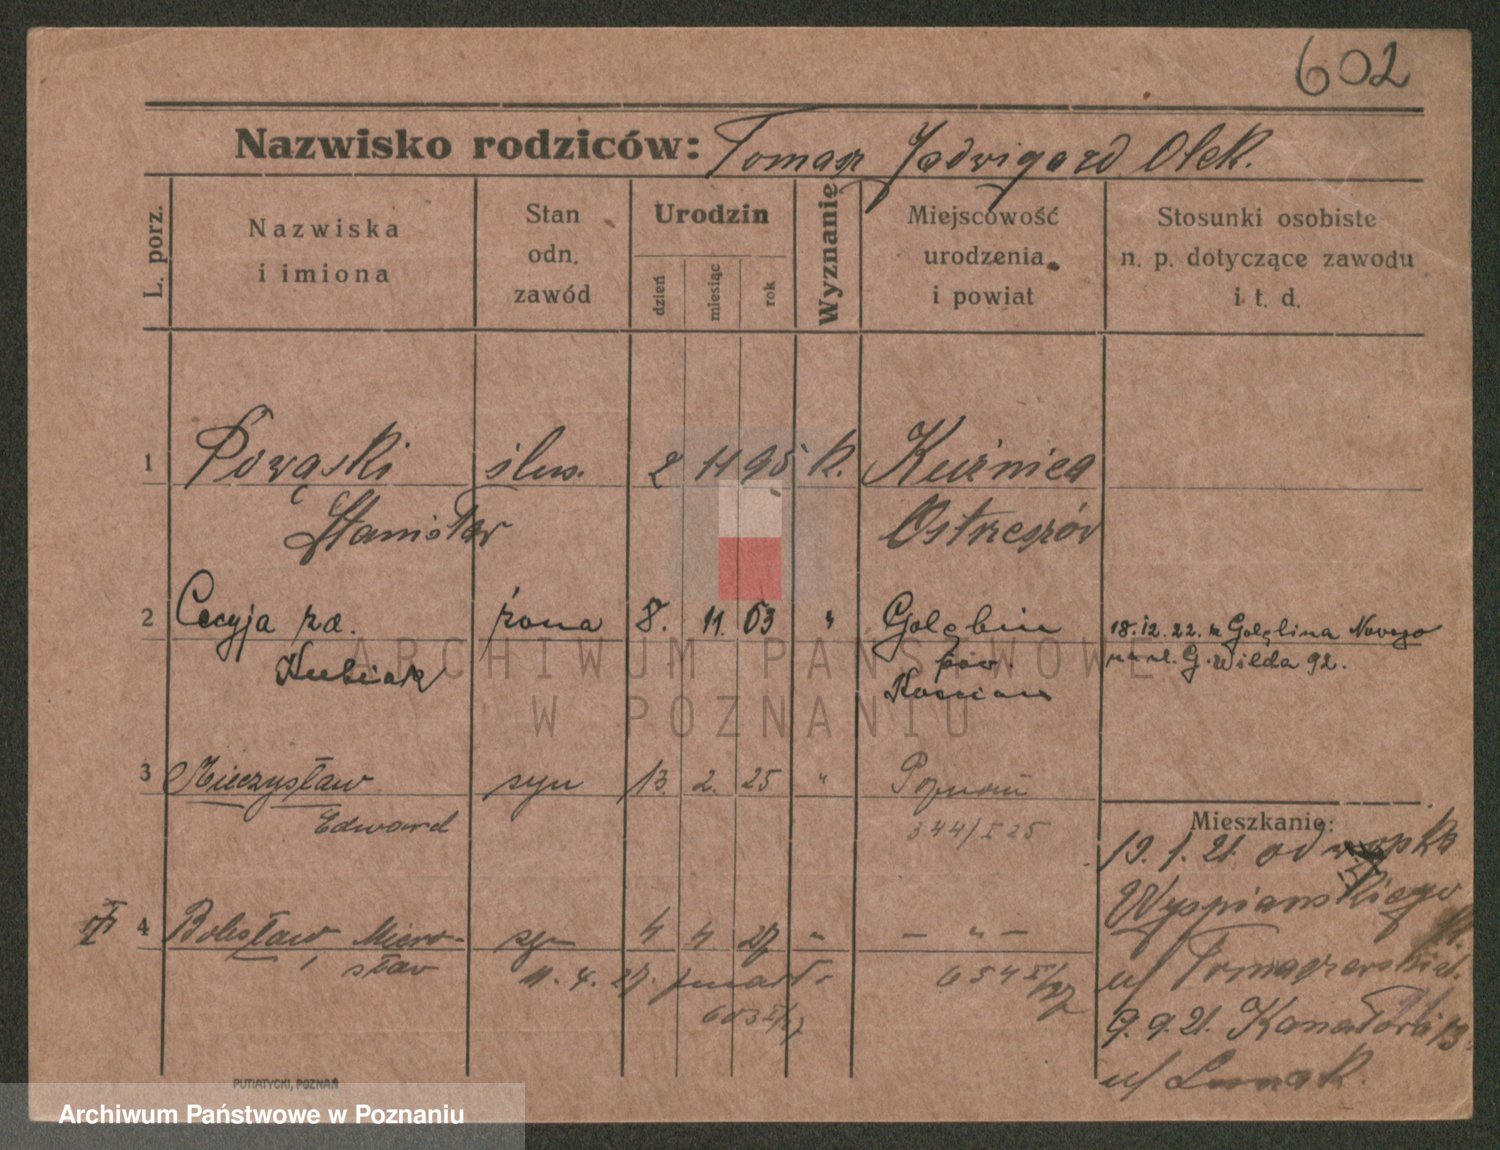 602
Nazwisko rodziców: Tomasz Jadwiga zd. Olek.
L. porz.
Nazwiska i imiona
Stan odn. zawód
Urodzin
dzień
miesiąc
rok
Wyznanie
Miejscowość urodzenia i powiat
Stosunki osobiste n. p. dotyczące zawodu i t. d.
1 Powąski ślus. 2 11 95 k. Kuźnica
Stanisław Ostrzeszów
2 Cecyja zd. żona 8. 11. 03 " Golębin 18.12.22. z Golębina Nowego
Kubiak pow. G. Wilda 92.
Kościan
3 Mieczysław syn 13. 2. 25 " Poznań
Edward 344/I 25
Mieszkanie:
19. 1. 21. od
Wyspiańskiego
4 Bolesław Miero- syn 4 4 27 " — " —
sław 11. 4. 27. zmarł 654
u/ Tomaszewski
603
9. 9. 21. Kanałowa 13
u/
PUTIATYCKI, POZNAŃ
ARCHIWUM PAŃSTWOWE
W POZNANIU
Archiwum Państwowe w Poznaniu